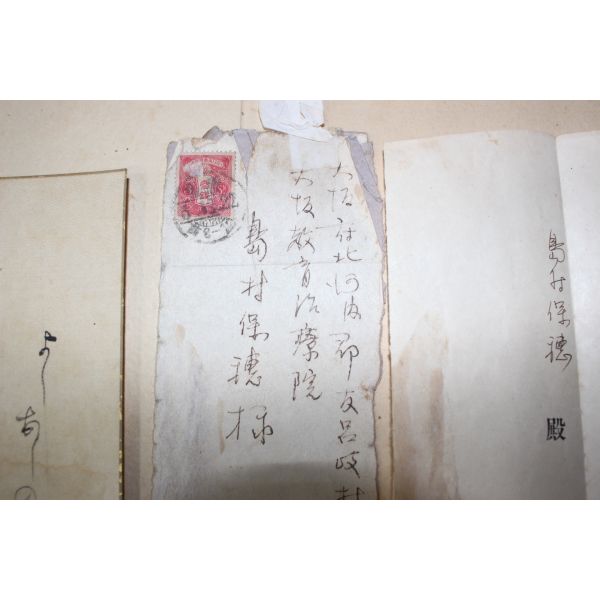 島村保穂
殿
大阪府北河内郡友呂岐村
大阪教育治療院
島村保穂様
よしの